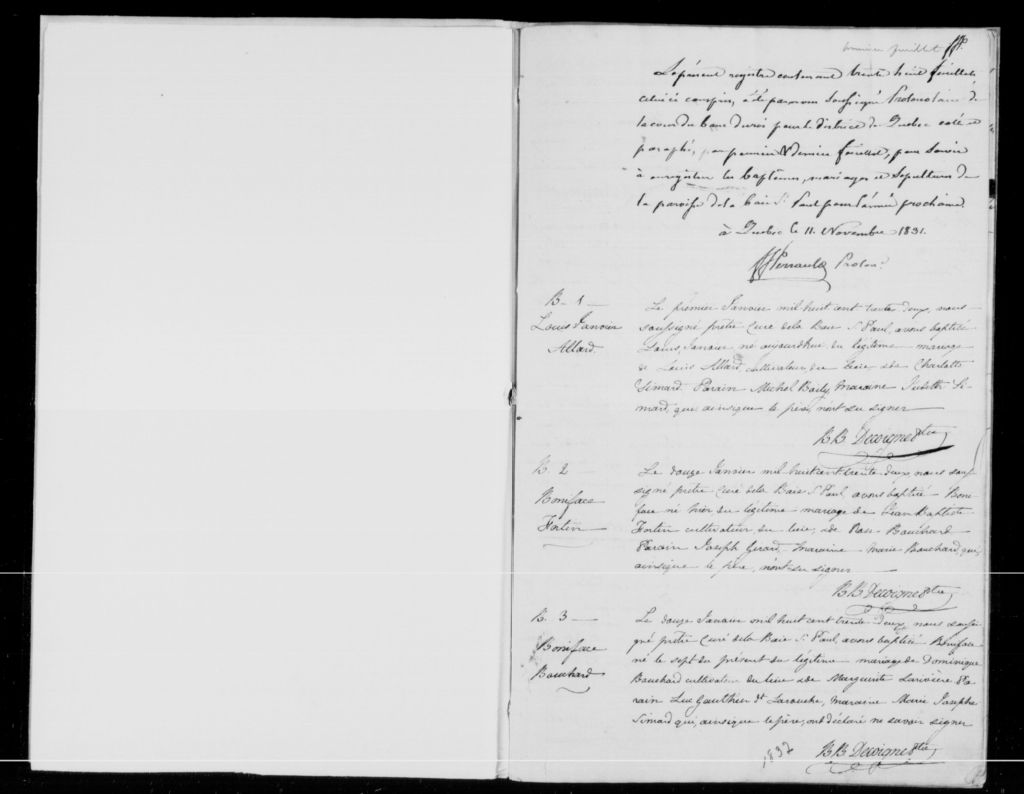 premier feuillet
Le présent registre contenant trente huit feuillets
celui ci compris, a été par nous soussigné Protonotaire de
la cour du banc du roi pour le district de Québec coté et
paraphé, par premier & dernier feuillet, pour servir
à enregistrer les baptêmes, mariages et sépultures de
la paroisse de la baie St Paul pour l'année prochaine.
à Québec le 11. Novembre 1831.
Perrault Proton.
B. 1
Louis Janvier
Allard.
Le premier Janvier mil huit cent trente deux, nous
soussigné prêtre Curé dela Baie S. Paul, avons baptisé
Louis Janvier né aujourdhui du légitime mariage
de Louis Allard, cultivateur du lieu & de Charlotte
Simard. Parain Michel Bailly, Maraine Judette Si-
mard, qui ainsique le père, n'ont su signer
B. 2
Boniface
Fortin
Le douze Janvier mil huit cent trente deux nous sous-
signé prêtre Curé dela Baie S. Paul, avons baptisé Boni-
face né hier du légitime mariage de Jean Baptiste
Fortin cultivateur du lieu, & de Rose Bouchard
Parain Joseph Girard, maraine Marie Bouchard, qui,
ainsique le père, n'ont su signer
B. 3
Boniface
Bouchard
Le douze Janvier mil huit cent trente deux, nous soussi-
gné prêtre Curé dela Baie S. Paul, avons baptisé Boniface
né le sept du présent du légitime mariage de Dominique
Bouchard cultivateur du lieu & de Marguerite Larivière Pa-
rain Luc Gauthier dt Larouche, Maraine Marie Josephe
Simard qui, ainsique le père, ont déclaré ne savoir signer
1832